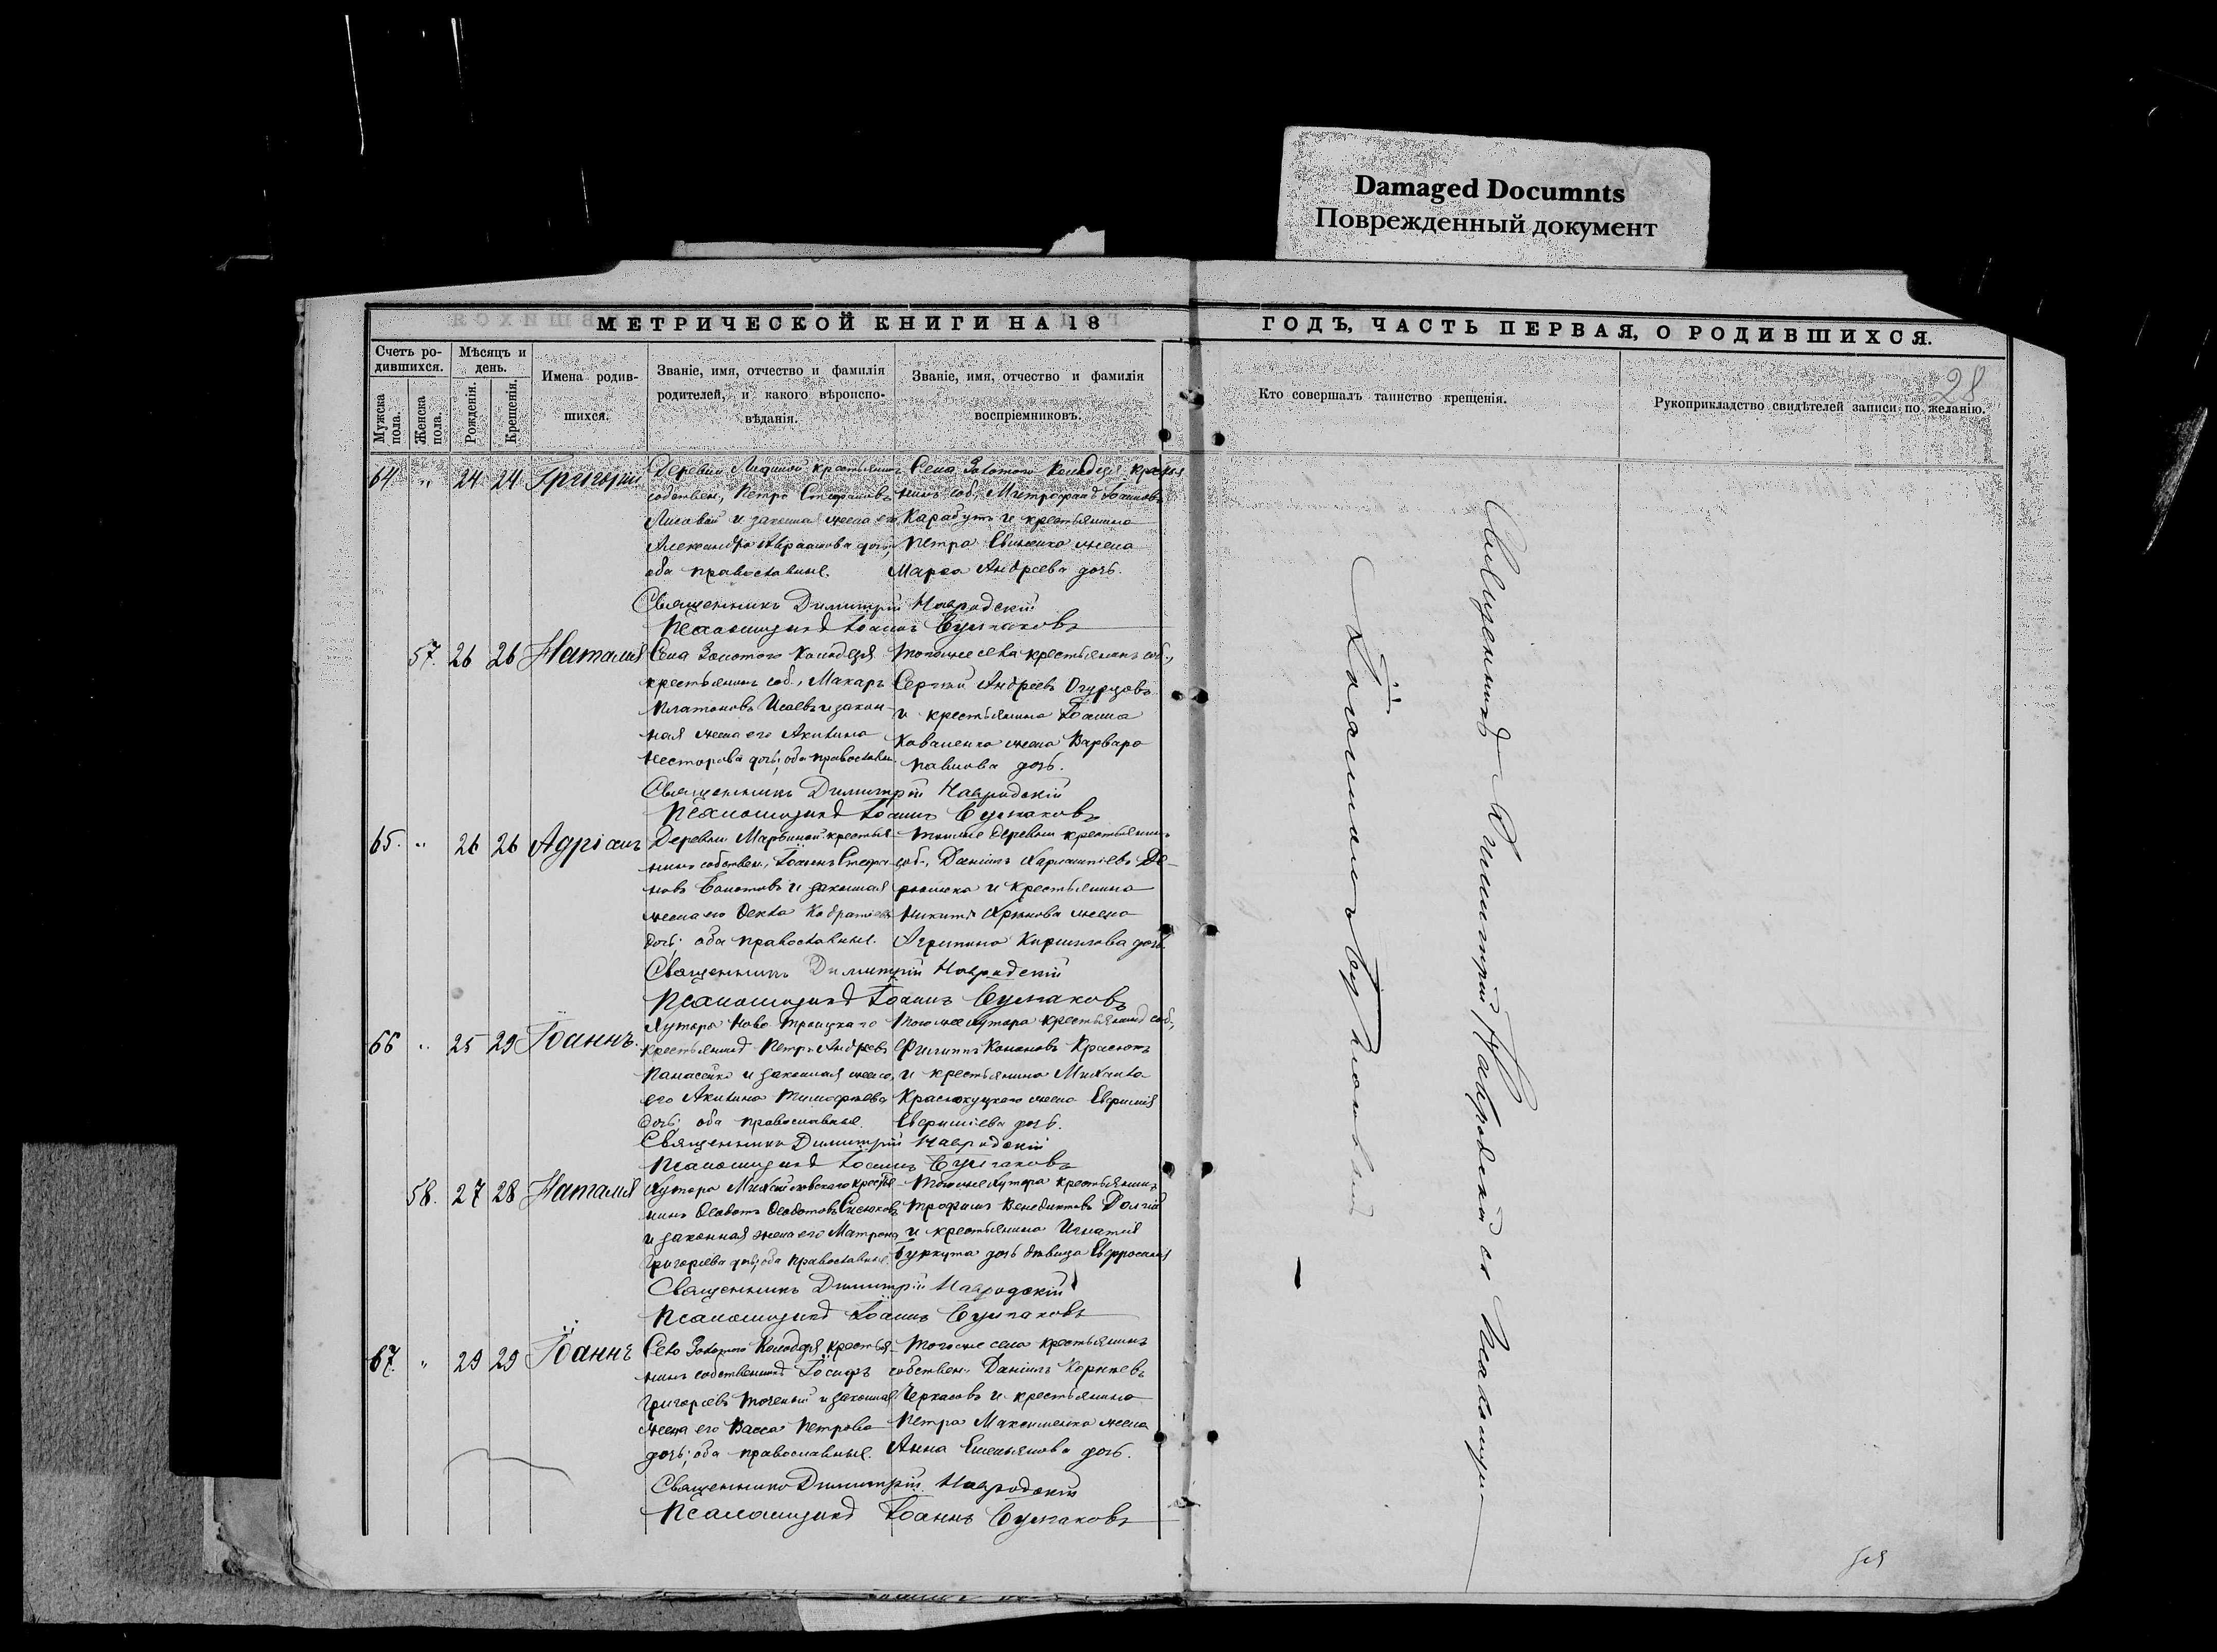 Damaged Documnts
Поврежденный документ
МЕТРИЧЕСКОЙ КНИГИ НА 18
ГОДЪ, ЧАСТЬ ПЕРВАЯ, О РОДИВШИХСЯ.
28
Счетъ родившихся.
Мужска пола.
Женска пола.
Мѣсяцъ и день.
Рожденія.
Крещенія.
Имена родившихся.
Званіе, имя, отчество и фамилія
родителей, и какого вѣроиспо-
вѣданія.
Званіе, имя, отчество и фамилія
воспріемниковъ.
Кто совершалъ таинство крещенія.
Рукоприкладство свидѣтелей записи по желанію.
64 " 24 24 Григорій
Деревни крестьянинъ
собствен., Петръ Стефановъ
Лисовой и законная жена его
Александра Авраамова дочь,
оба православные.
Села Золотого Колодезя крестья
нинъ соб., Митрофанъ Іоанновъ
Карабутъ и крестьянина
Петра жена
Марѳа Андреева дочь.
Священникъ Димитрій Навродскій
Псаломщикъ Іоаннъ Булгаковъ
57. 26 26 Наталія
Села Золотого Колодезя
крестьянинъ соб., Макаръ
Платоновъ Исаевъ и закон-
ная жена его Акилина
Несторова дочь; оба православн.
Тогоже села крестьянинъ соб.,
Сергій Андреевъ Огурцовъ
и крестьянина Іоанна
Коваленка жена Варвара
Павлова дочь.
Священникъ Димитрій Навродскій
Псаломщикъ Іоаннъ Булгаковъ
65. " 26 26 Адріанъ
Деревни Марьиной крестья-
нинъ собствен., Іоаннъ Стефа-
новъ Болотовъ и законная
жена его Ѳекла
дочь; оба православные.
Тойже деревни крестьянинъ
соб., Даніилъ Харлампіевъ Де-
и крестьянина
Никиты жена
Агрипина Кириллова дочь.
Священникъ Димитрій Навродскій
Псаломщикъ Іоаннъ Булгаковъ
66 " 25 29 Іоаннъ.
Хутора Ново-Троицкаго
крестьянинъ Петръ Андреевъ
Панасейко и законная жена
его Акилина Тимофеева
дочь; оба православные.
Тогоже хутора крестьянинъ соб.,
Филиппъ Кононовъ Краснокъ
и крестьянина Михаила
Краснокуцкаго жена Евфимія
Евфиміева дочь.
Священникъ Димитрій Навродскій
Псаломщикъ Іоаннъ Булгаковъ
58. 27 28 Наталія
Хутора Михайловскаго крестья-
нинъ Ѳеодотъ Ѳеодотовъ
и законная жена его Матрона
Григорьева дочь; оба православные.
Тогоже хутора крестьянинъ
Трофимъ Венедиктовъ Долгій
и крестьянина Игнатія
Буркута дочь дѣвица Евфросинія
Священникъ Димитрій Навродскій
Псаломщикъ Іоаннъ Булгаковъ
67. " 29 29 Іоаннъ
Села Золотого Колодезя крестья-
нинъ собственникъ Іосифъ
Григорьевъ Точеный и законная
жена его Васса Петрова
дочь; оба православные.
Тогоже села крестьянинъ
собствен. Даніилъ Корнѣевъ
Черкасовъ и крестьянина
Петра Максименка жена
Анна Емельянова дочь.
Священникъ Димитрій Навродскій
Псаломщикъ Іоаннъ Булгаковъ
Священникъ Димитрій Навродскій съ Псаломщи-
комъ Іоанномъ Булгаковымъ